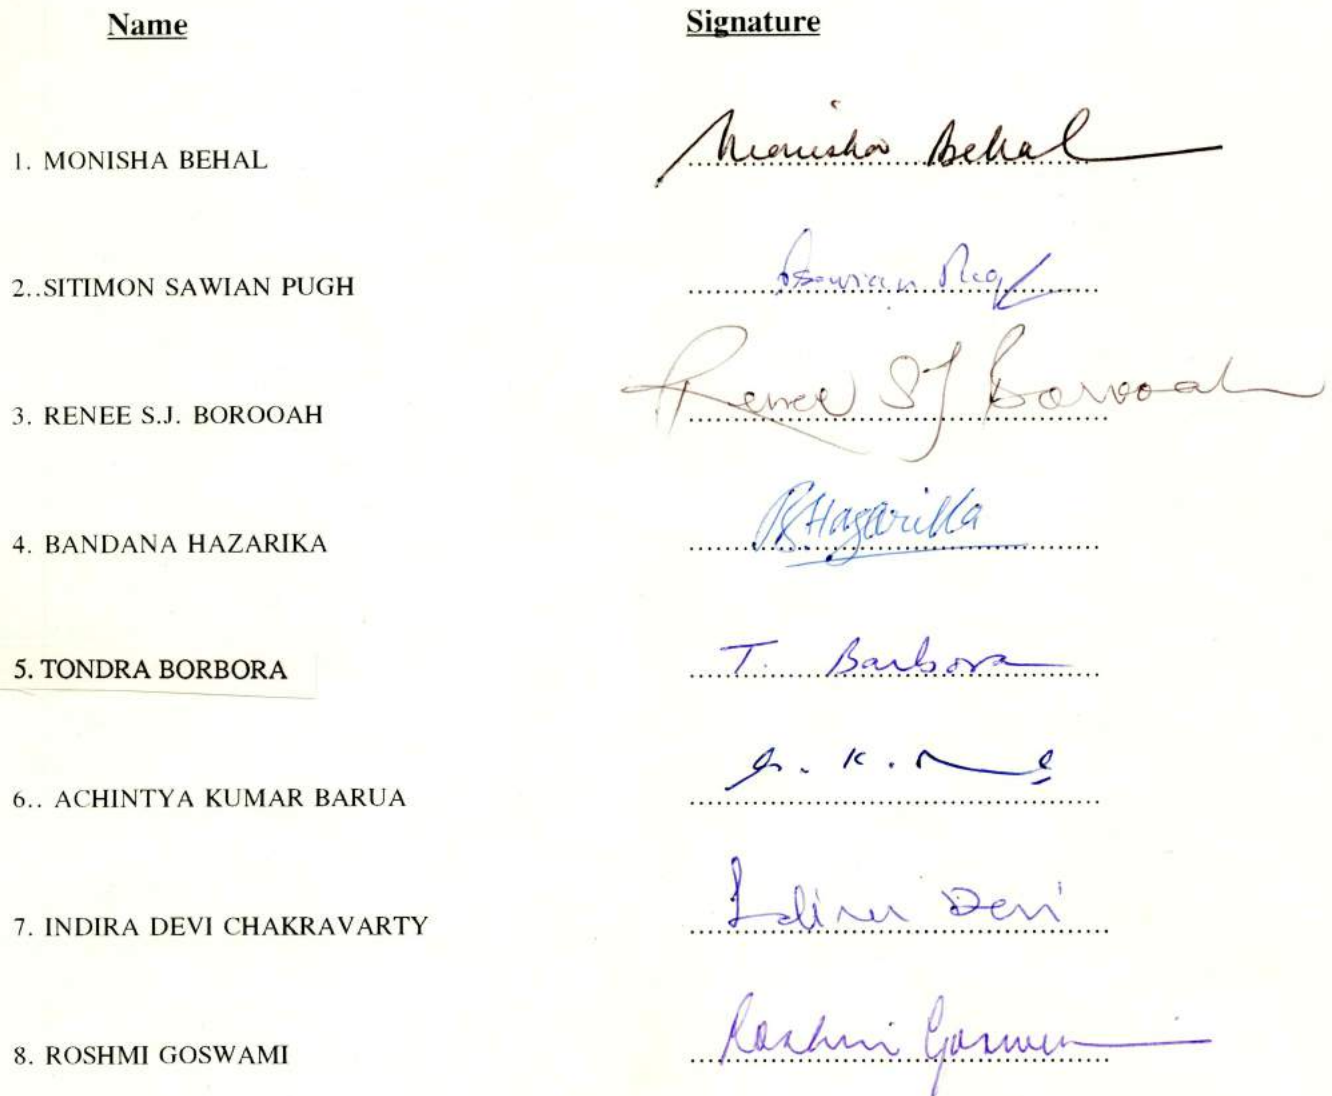 Name Signature
1. MONISHA BEHAL Monisha Behal
2..SITIMON SAWIAN PUGH
3. RENEE S.J. BOROOAH Renee SJ Borooah
4. BANDANA HAZARIKA BHazarika
5. TONDRA BORBORA T. Barbora
6.. ACHINTYA KUMAR BARUA
7. INDIRA DEVI CHAKRAVARTY Indira Devi
8. ROSHMI GOSWAMI Roshmi Goswami